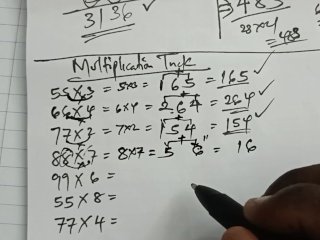 3136
483
23x21
= 483
Multiplication Trick
55x3 = 5x3 = 165 = 165
66x4 = 6x4 = 264 = 264
77x2 = 7x2 = 154 = 154
88x7 = 8x7 = 5 6 = 16
99x6 =
55x8 =
77x4 =